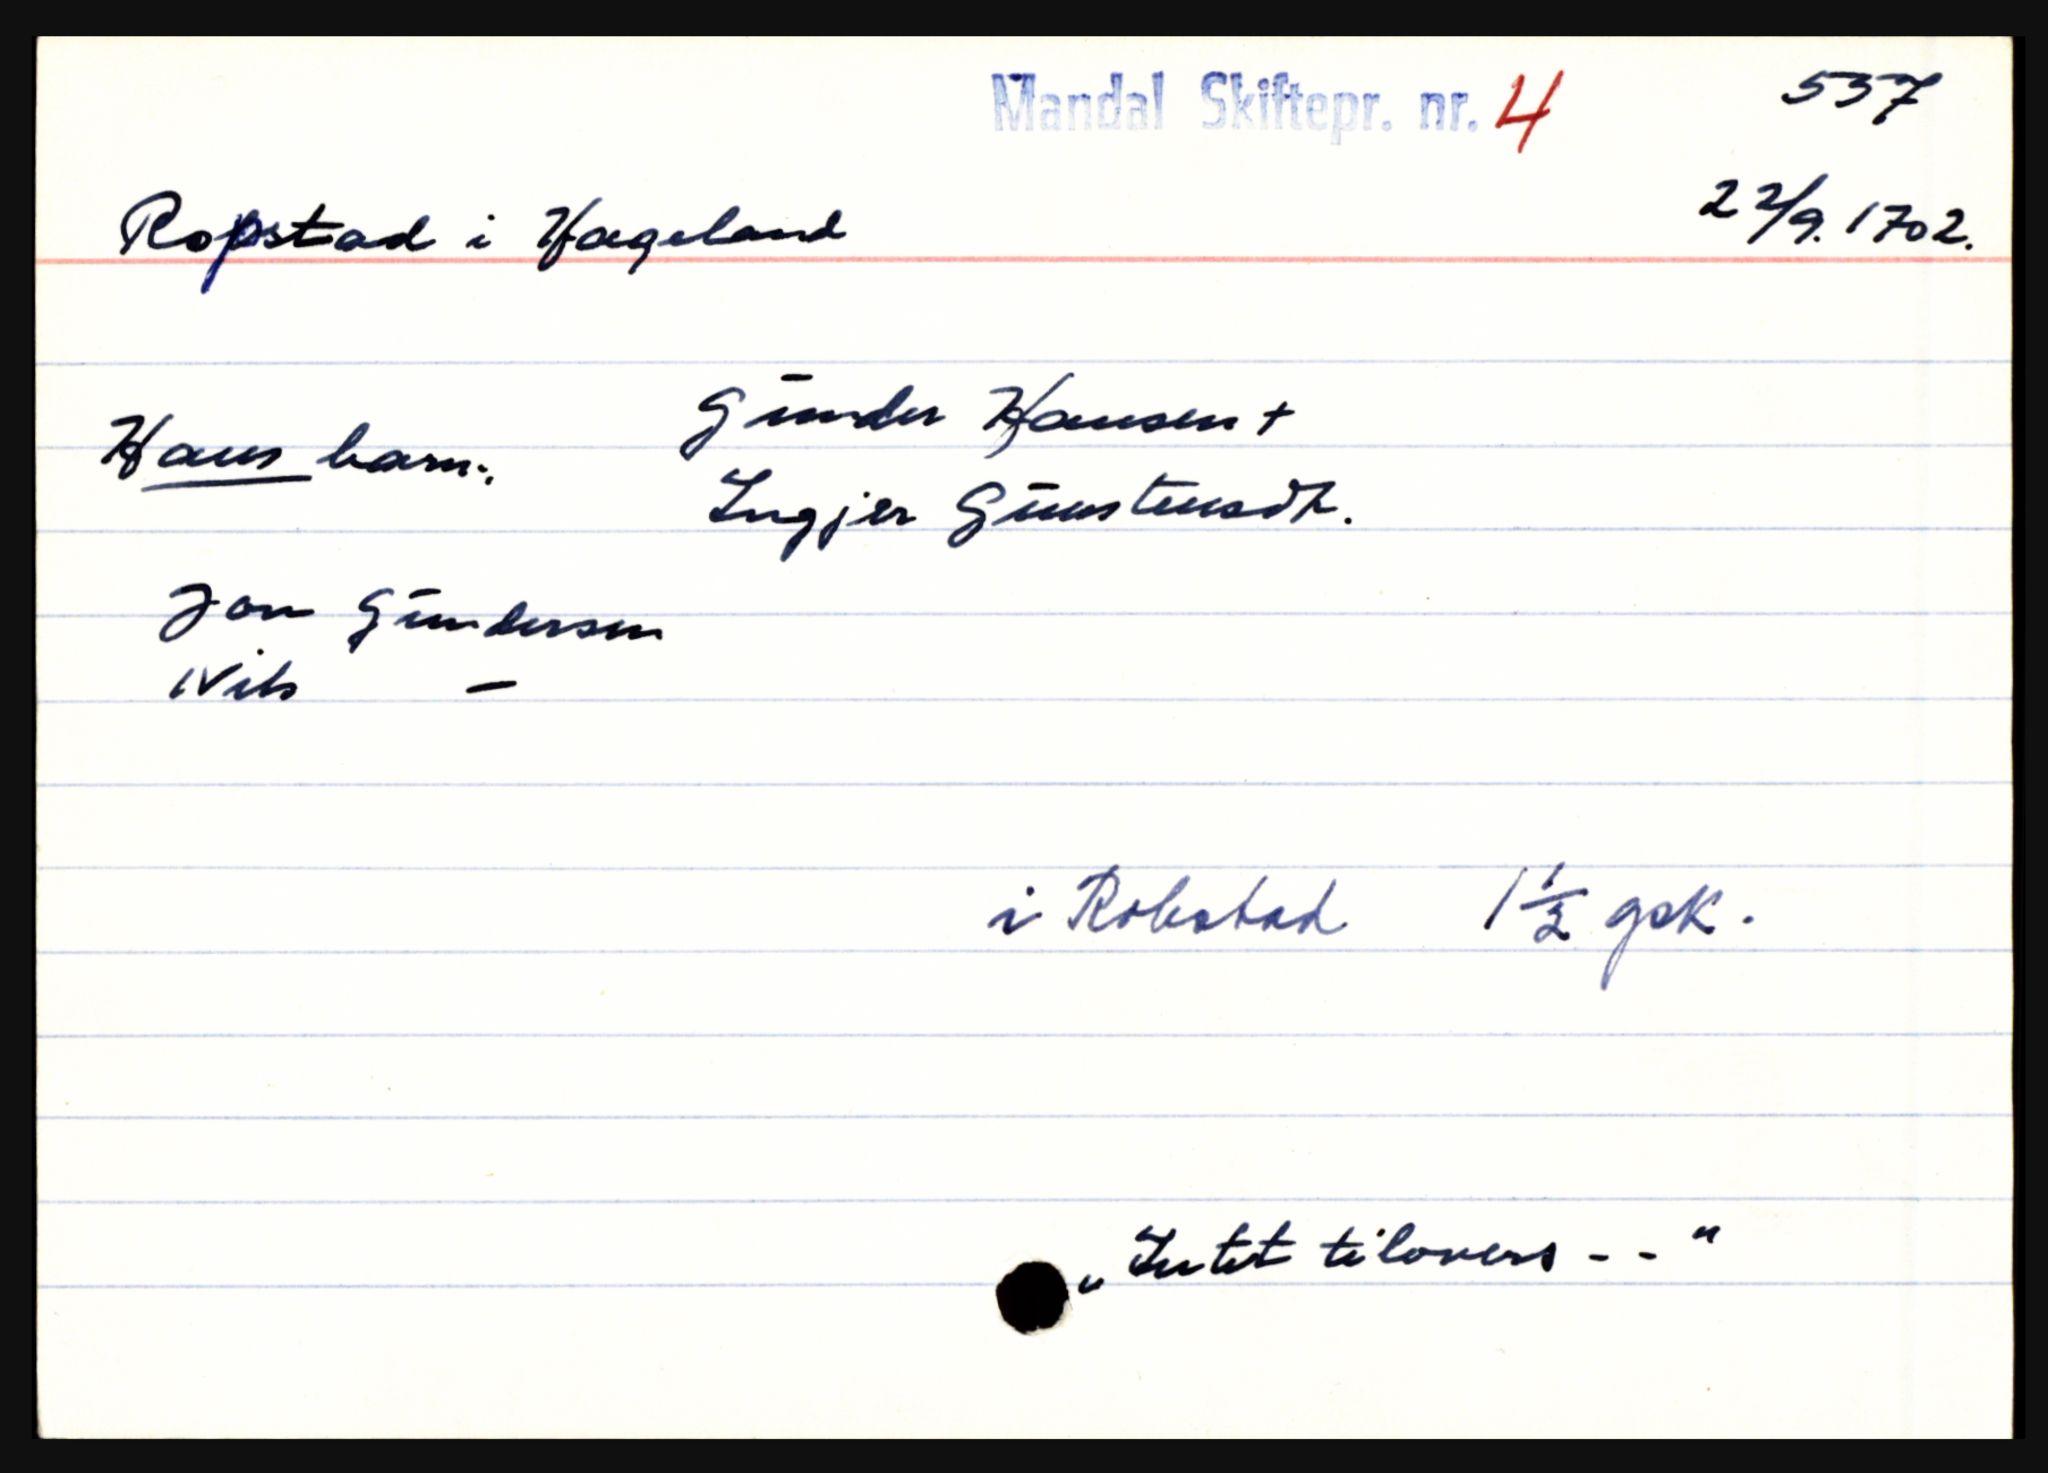 Mandal Skiftepr. nr. 4 537
Ropstad i Hægeland 22/9. 1702.
Gunder Hansen +
Hans barn:
Ingjer Gunstensdtr.
Jon Gundersen
Nils —
i Robstad 1 1/2 gsk.
„Intet tilovers - - "